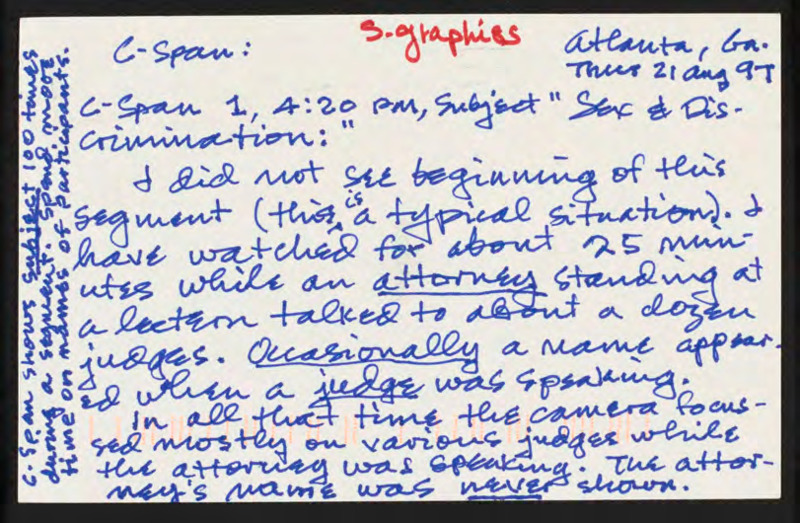 S-graphics
C-Span:
Atlanta, Ga.
Thur 21 Aug 97
C-Span 1, 4:20 pm, Subject "Sex & Dis-
crimination:"
I did not see beginning of this
segment (this is a typical situation). I
have watched for about 25 min-
utes while an attorney standing at
a lectern talked to about a dozen
judges. Occasionally a name appear-
ed when a judge was speaking.
In all that time the camera focus-
sed mostly on various judges while
the attorney was speaking. The attor-
ney's name was never shown.
C-Span shows subject 100 times
during a segment. Spend more
time on names of participants.